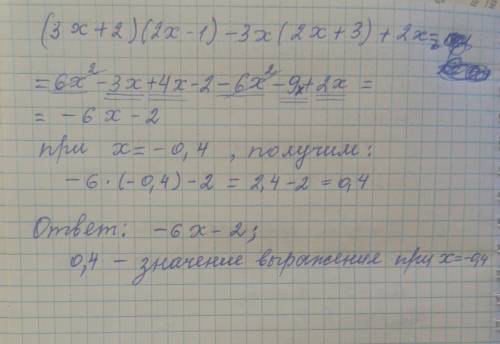 (3x+2)(2x-1)-3x(2x+3)+2x=
=6x²-3x+4x-2-6x²-9x+2x=
=-6x-2
при x=-0,4, получим:
-6·(-0,4)-2=2,4-2=0,4
Ответ: -6x-2;
0,4 - значение выражения при x=-0,4